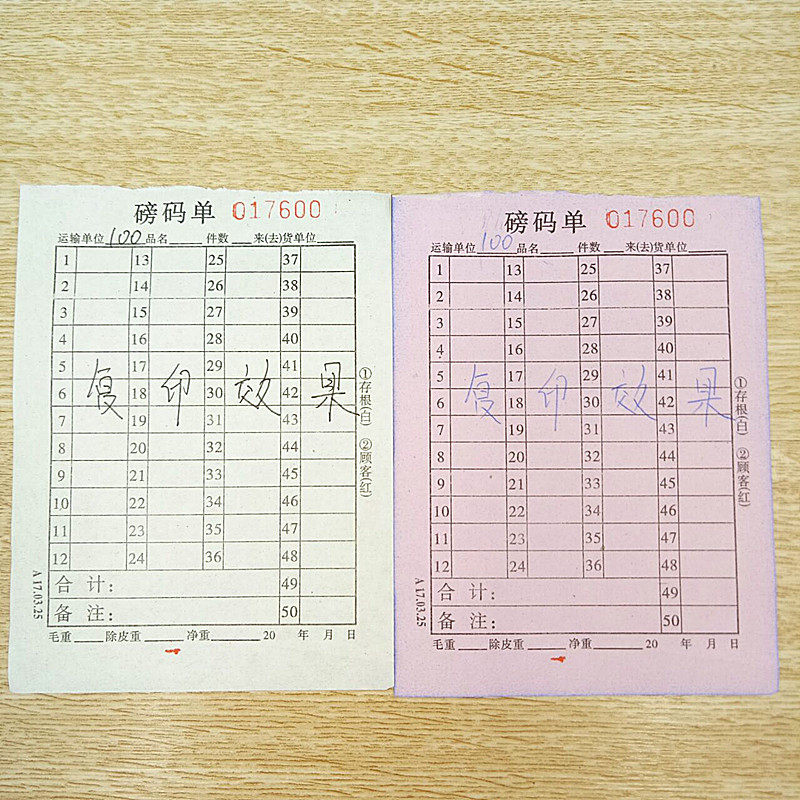 磅码单 017600
运输单位 100 品名 件数 来(去)货单位
1 13 25 37
2 14 26 38
3 15 27 39
4 16 28 40
5 17 29 41
6 18 30 42
7 19 31 43
8 20 32 44
9 21 33 45
10 22 34 46
11 23 35 47
12 24 36 48
复印效果
合计: 49
备注: 50
毛重 除皮重 净重 20 年 月 日
①存根(白) ②顾客(红)
A 17.03.25
磅码单 017600
运输单位 100 品名 件数 来(去)货单位
1 13 25 37
2 14 26 38
3 15 27 39
4 16 28 40
5 17 29 41
6 18 30 42
7 19 31 43
8 20 32 44
9 21 33 45
10 22 34 46
11 23 35 47
12 24 36 48
复印效果
合计: 49
备注: 50
毛重 除皮重 净重 20 年 月 日
①存根(白) ②顾客(红)
A 17.03.25